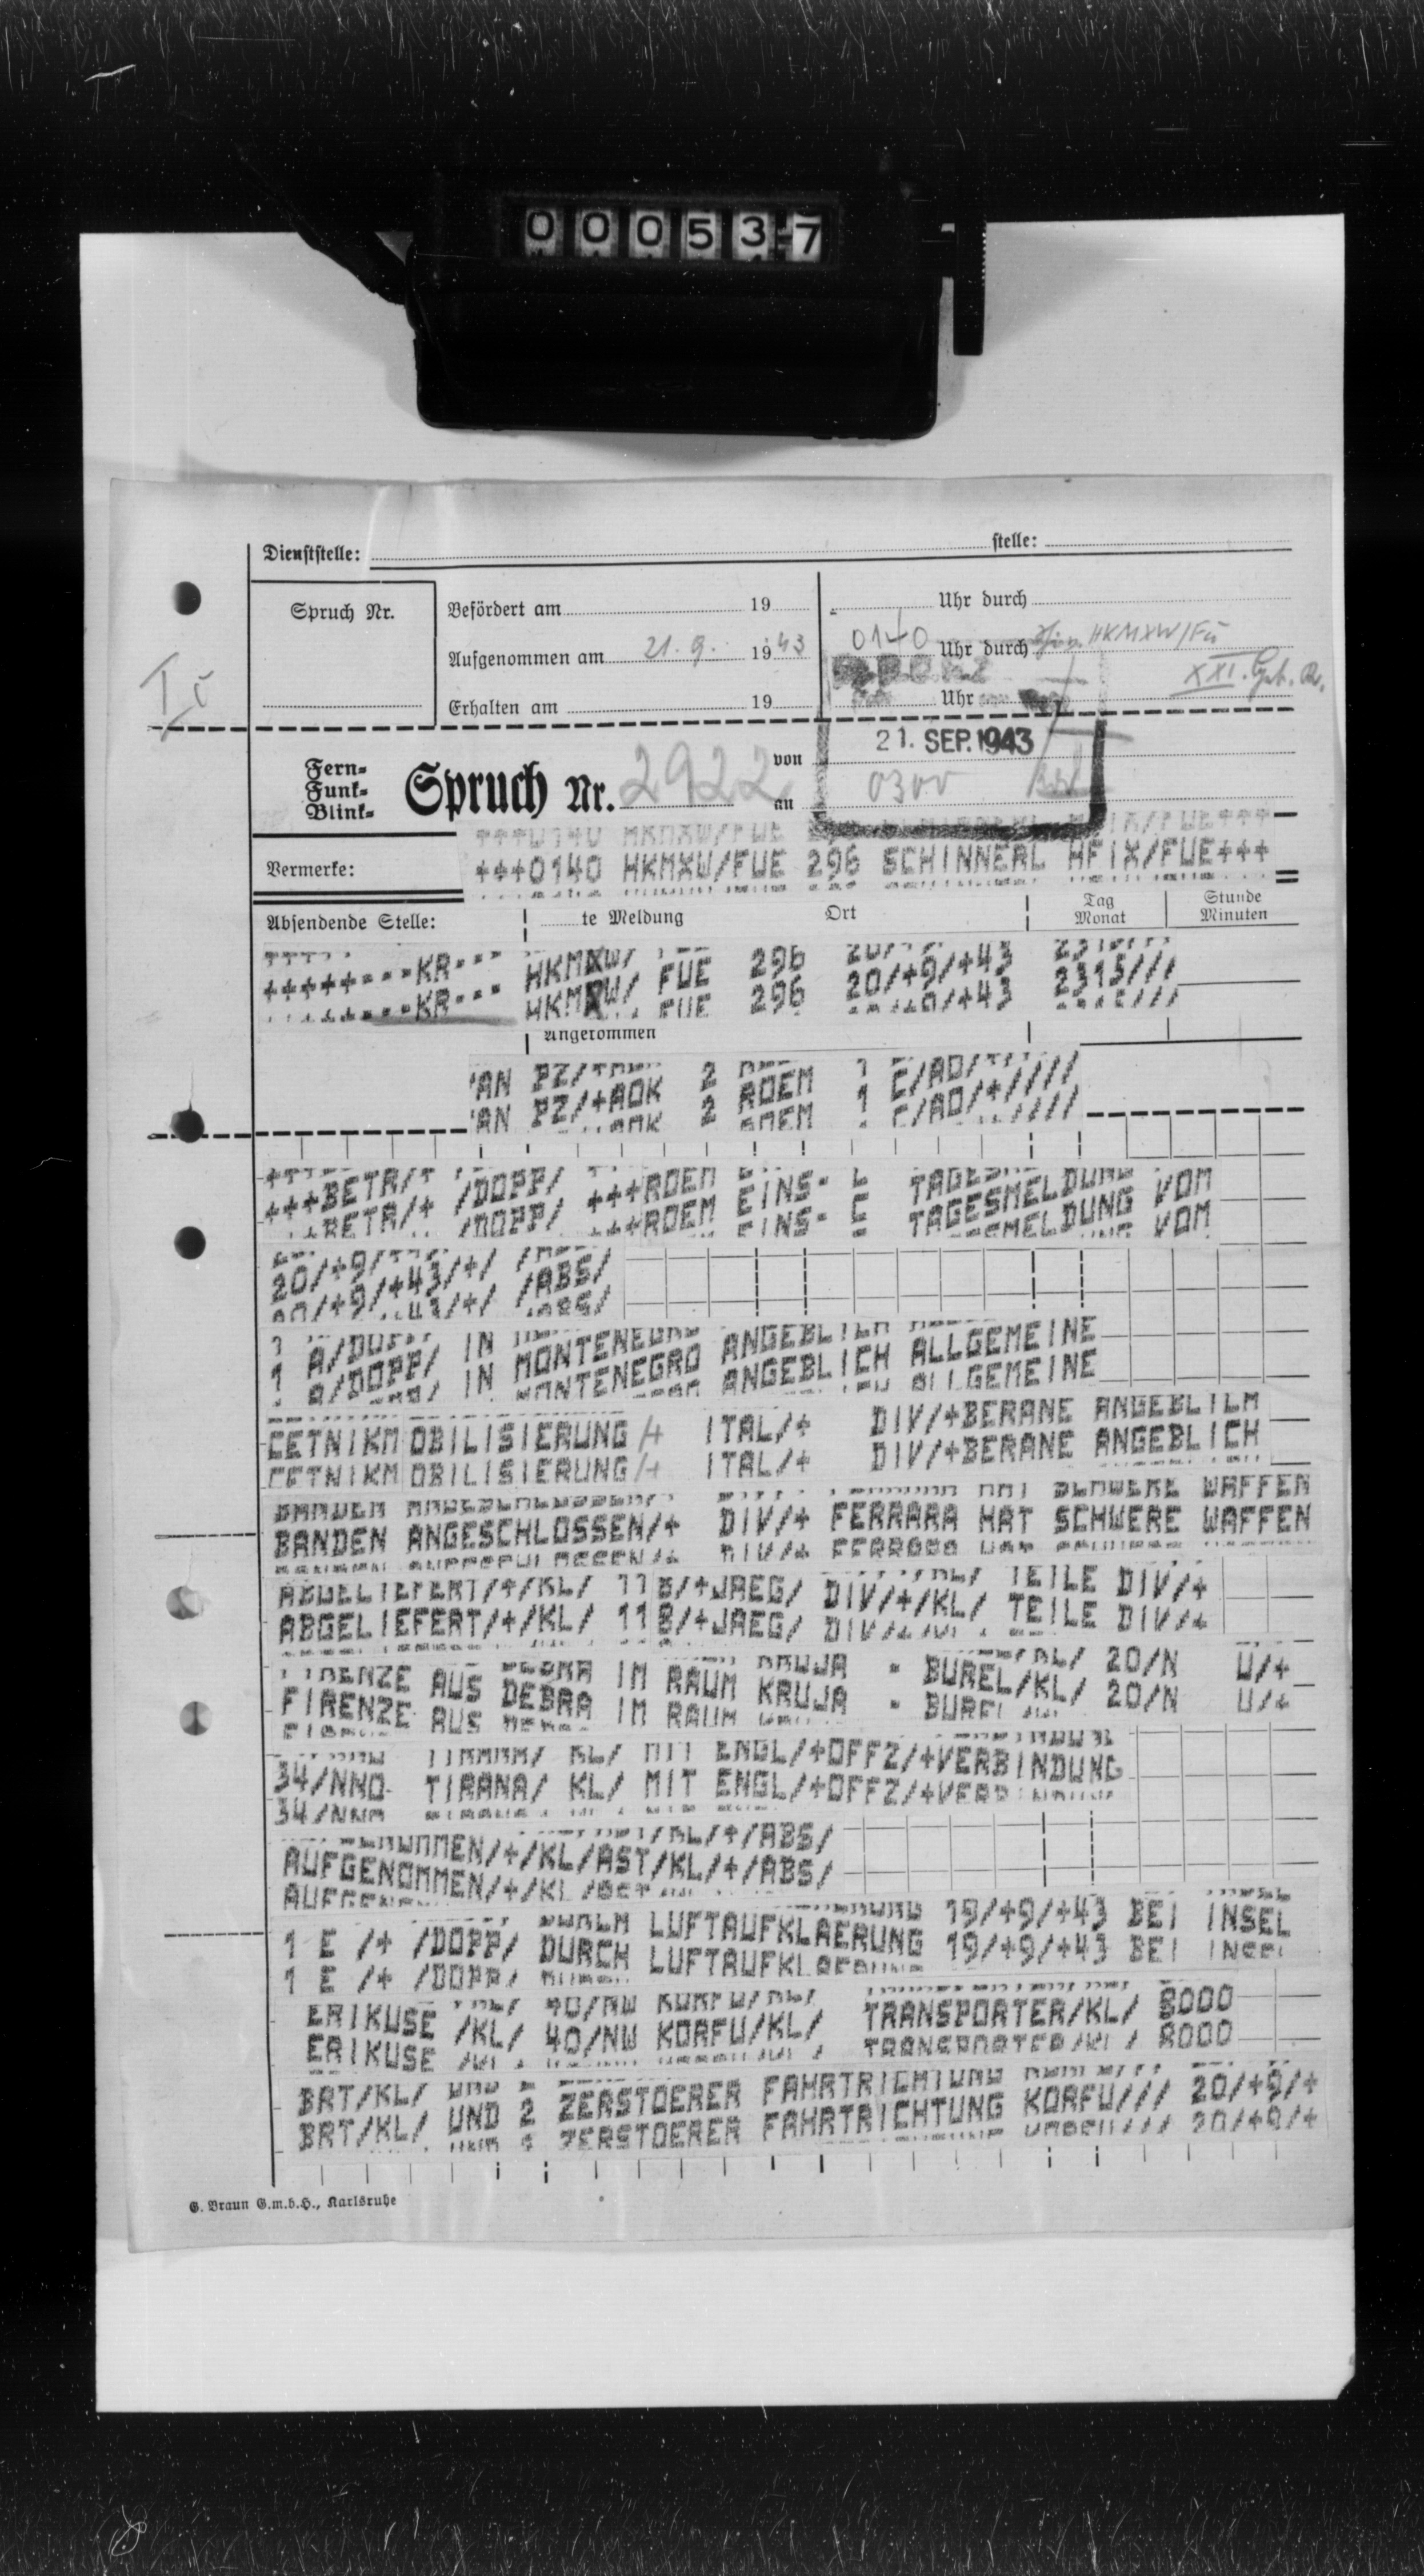 000537
Dienststelle: stelle:
Spruch Nr.
Befördert am 19 Uhr durch
Aufgenommen am 21.9. 1943 0140 Uhr durch HKMXW/Fü
XXI. Geb. K.
Erhalten am 19 Uhr
Ic
21. SEP. 1943
Fern-
Funk-
Blink-
Spruch Nr. 2922 von
an 0300
Vermerke: +++0140 HKMXW/FUE 296 SCHINNERL HFIX/FUE+++
Absendende Stelle: te Meldung Ort Tag Monat Stunde Minuten
+++++---KR--- HKMXW/ FUE 296 20/+9/+43 2315///
Angekommen
AN PZ/+AOK 2 ROEM 1 C/AO/+/////
+++BETR/+ /DOPP/ +++ROEM EINS- C TAGESMELDUNG VOM
20/+9/+43/+/ /ABS/
1 A/DOPP/ IN MONTENEGRO ANGEBLICH ALLGEMEINE
CETNIKMOBILISIERUNG/+ ITAL/+ DIV/+BERANE ANGEBLICH
BANDEN ANGESCHLOSSEN/+ DIV/+ FERRARA HAT SCHWERE WAFFEN
ABGELIEFERT/+/KL/ 118/+JAEG/ DIV/+/KL/ TEILE DIV/+
FIRENZE AUS DEBRA IM RAUM KRUJA - BUREL/KL/ 20/N U/+
34/NNO TIRANA/ KL/ MIT ENGL/+OFFZ/+VERBINDUNG
AUFGENOMMEN/+/KL/AST/KL/+/ABS/
1 E /+ /DOPP/ DURCH LUFTAUFKLAERUNG 19/+9/+43 BEI INSEL
ERIKUSE /KL/ 40/NW KORFU/KL/ TRANSPORTER/KL/ 8000
BRT/KL/ UND 2 ZERSTOERER FAHRTRICHTUNG KORFU/// 20/+9/+
G. Braun G.m.b.H., Karlsruhe